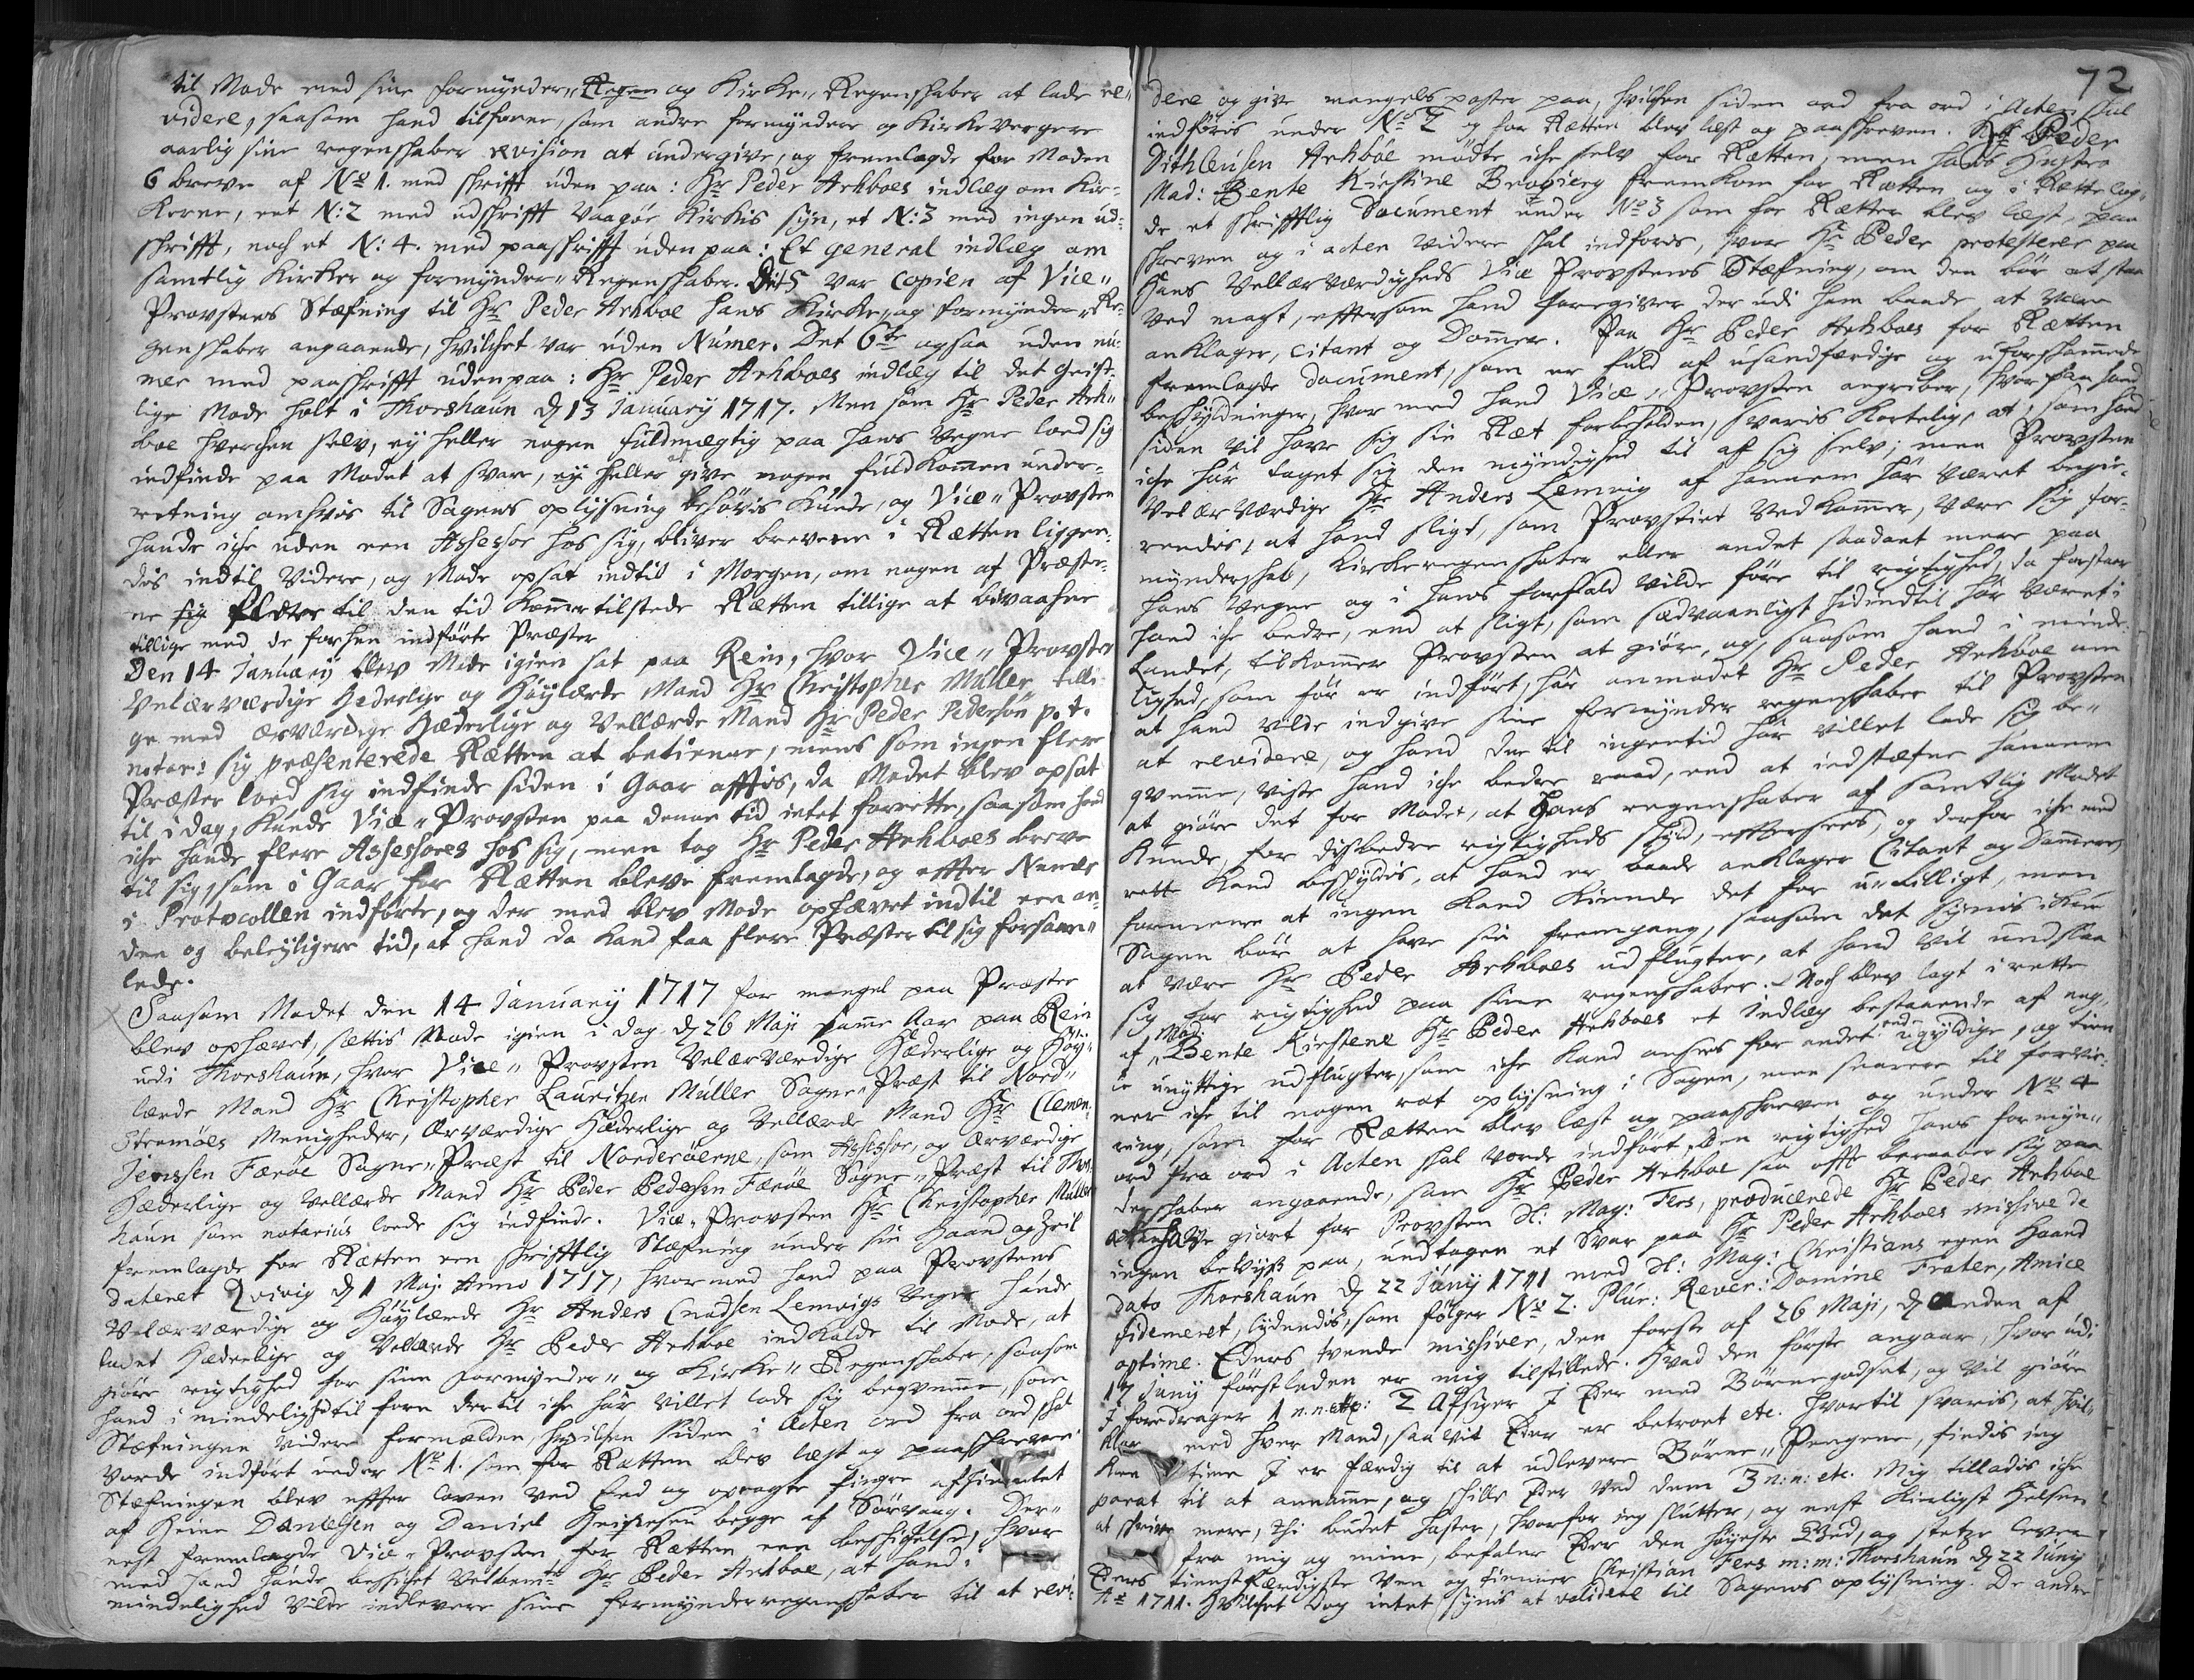 til Mode med sine formynder„ Regen og Kirke„ Regenskaber at lade re„
videre, saasom hand tilforne, som andre formyndere og Kirkevergere
aarlig sine regenskaber revision at undergive, og fremlagde for Moden
6 breve af No 1. med skrifft uden paa: Hr Peder Arhboes indlæg om Kir-
Kerne, eet N: 2 med udskrifft Vaagøe Kirkis syn, et N: 3 med ingen ud-
skrifft, noch et N: 4. med paaskrifft uden paa: Et general indlæg om
samtlig Kirker og formynder„ Regenskaber. Det 5 var Copien af Vice„
Provstens Stæfning til Hr Peder Arhboe hans Kirke„ og formynder„ Re-
genskaber angaaende, hvilchet var uden Numer. Det 6te ogsaa uden nu-
mer med paaskrifft udenpaa: Hr Peder Arhboes indlæg til det Geist-
lige Mode holt i Thorshaun d 13 January 1717. Men som Hr Peder Arh„
boe hverchen selv, ey heller nogen fuldmægtig paa hans Vegne loed sig
indfinde paa Modet at svare, ey heller at give nogen fuldkommen under-
retning omhvis til Sagens oplysning behövis Kunde, og Vice„ Provsten
hafde iche uden een Assessor hos sig, bliver brevene i Rætten liggen-
dis indtil Videre, og Mode opsat indtil i Morgen, om nogen af Præster-
ne sig fleere til den tid Kommer tilstede Rætten tillige at bivaahne
tillige med de forhen indførte Præster
Den 14 January blev Mode igien sat paa Rein, hvor Vice„ Provsten
Velærværdige Hederlige og Høylærde Mand Hr Christopher Müller tilli-
ge med ærværdige Hæderlige og Vellærde Mand Hr Peder Pedersön p.t.
notar: sig præsenterede Rætten at betienne, mens som ingen flere
Præster loed sig indfinde siden i Gaar afftis, da Modet blev opsat
til i dag, Kunde Vice„ Provsten paa denne tid intet forrette, saasom hand
iche hafde flere Assessores hos sig, men tog Hr Peder Arhboes breve
til sig, som i Gaar for Rætten bleve fremlagde, og effter Numer
i Protocollen indførte, og der med blev Mode ophævet indtil een an-
den og beleyligere tid, at hand da Kand faa flere Præster til sig forsam„
lede.
Saasom Modet den 14 January 1717 for mangel paa Præster
blev ophævet, sættis Mode igien i dag d 26 Maji samme Aar paa Rein
udi Thorshaun, hvor Vice„ Provsten Velærværdige Hæderlige og Höy-
lærde Mand Hr Christopher Lauritzen Müller Sogne„ Præst til Nord„
Strømøes Menigheder, Ærværdige Hæderlige og Vellærde Mand Hr Clemen
Jenssen Færøe Sogne„ Præst til Norderöerne, som Assessor, og Ærværdige
Hæderlige og Vellærde Mand Hr Peder Pedersen Færöe Sogne„ Præst til Thors
haun som notarius loede sig indfinde. Vice„ Provsten Hr Christopher Müller
fremlagde for Rætten een skrifftlig Stæfning under sin Haand og Zeil
dateret Qvivig d 1 Maj Anno 1717, hvormed hand paa Provstens
Velærværdige og Höylærde Hr Anders Cnudsen Lemvigs Vegne hafde
ladet Hæderlige og Velærde Hr Peder Arhboe indkalde til Mode, at
giöre rigtighed for sine formynder„ og Kirke„ Regenskaber, saasom
hand i mindelighed til forn dertil iche har villet lade sig begvemme, som
Stæfningen videre formælder, hvilchen siden i Acten ord fra ord skal
Vorde indført under No 1. som for Rætten blev læst og paaskreven.
Stæfningen blev effter loven ved Eed og opragte fingre afhiemlet
af Heine Danielsen og Daniel Heinesen begge af Sörvaag. Der„
nest fremlagde Vice„ Provsten for Rætten een beskichelse, hvor
med hand hafde beskichet Velbemte Hr Peder Arhboe, at hand i
mindelighed Vilde indlevere sine formynderregenskaber til at revi-
72
dere og give mangels poster paa, hvilchen siden ord fra ord i Acten skal
indføris under No 2 og for Rætten blev læst og paaskreven. Hr Peder
Dithleusen Arhboe mødte iche selv for Rætten, men hans Hustro
Mad: Bente Kirstine Brogierg fremkom for Rætten og i Rættelag-
de et skrifftlig Document under No 3 som for Rætten blev læst, paa
skreven og i acten Videre skal indføris, hvor Hr Peder protesterer paa
Hans Vellærværdigheds Vice Provstens Stæfning, om den bør at staa
Ved magt, efftersom hand foregiver der udi ham baade at Være
anklager, Citant og Dommer. Paa Hr Peder Arhboes for Rætten
fremlagde Document, som er fuld af usandfærdige og uforskammede
beskyldninger, hvor med hand Vice„ Provsten angriber, hvor paa hand
siden vil have sig sin Ræt forbeholden, svaris Kortelig, at, som hand
iche har taget sig den myndighed til af sig selv; men Provsten
Velærværdige Hr Anders Lemvig af hannem har været begie-
rendis, at hand sligt, som Provstiet Vedkommer, være sig for-
mynderskab, Kirkeregenskaber eller andet saadant meere paa
hans Vegne og i hans forfald Vilde føre til rigtighed, da forstaar
hand iche bedre, end at sligt, som sædvaanligt hidindtil har Været i
Landet, tilkommer Provsten at giöre, og, saasom hand i minde-
lighed, som før er indført, har anmodet Hr Peder Arhboe om
at hand Vilde indgive sine formynder regenskaber til Provsten
at revidere, og hand der til ingentid har villet lade sig be„
qvemme, viste hand iche bedre raad, end at indstæfne hannem
at giöre det for Modet, at Hans regenskaber af samtlig Modet
Kunde, for disbedre rigtigheds skyld, efftersees, og derfor iche med
rette Kand beskyldis, at hand er baade anklager Citant og Dommere,
formener at ingen Kand Kiende det for u„billigt, men
Sagen bör at have sin fremgang, saasom det synis ikun
at være Hr Peder Arhboes udflugter, at hand Vil undslaa
sig for rigtighed paa sine regenskaber. Noch blev lagt i rette
af Mad: Bente Kirstene Hr Peder Arhboes et Indlæg bestaaende af nog„
le unyttige udflugter, som iche Kand ansees for andet end ugyldige, og tien
ner iche til nogen ræt oplysning i Sagen, men snarere til forvir-
ring, som for Rætten blev læst og paaskreven og under No 4
ord fra ord i Acten skal vorde indført. Den rigtighed hans formyn„
derskaber angaaende, som Hr Peder Arhboe saa offte beraaber sig paa
at have giort for Provsten Sl: Mag: Fers, producerede Hr Peder Arhboe
ingen bevyß paa, undtagen et Svar paa Hr Peder Arhboes missive de
dato Thorshaun d 22 Junij 1711 med Sl: Mag: Christians egen Haand
fidemeret, lydendis, som følger No 2. Plur: Rever: Domine Frater, Amice
optime. Eders tvende missiver, den forste af 26 Maji, d anden af
17 Junij førstleden er mig tilstillede. Hvad den förste angaar, hvor udi
J foredrager 1 n.n. etc: 2 Afsiger J Eder med Børnegodset, og Vil giöre
Klar med hver Mand, saavit Eder er betroet etc. hvortil svaris, at hvil-
Ken time J er færdig til at udlevere Børne„ Pengene, findis jeg
parat til at annamme, og skille Eder Ved dem 3 n: n: etc. Mig tilladis iche
at skrive mere, thi budet haster, hvorfor jeg slutter, og nest Kierligst Helsen
fra mig og mine, befaler Eder den høyeste Gud, og stetze lever
Eders tienstfærdigste Ven og tienner Christian Fers m: m: Thorshaun d 22 Junij
Ao 1711. Hvilchet dog intet synis at validere til Sagens oplysning. De andre